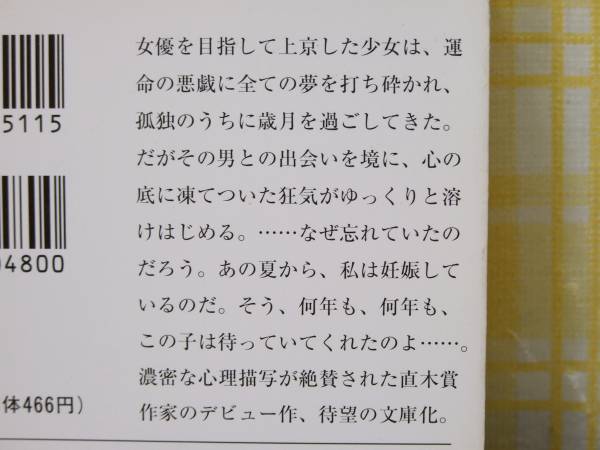 女優を目指して上京した少女は、運
命の悪戯に全ての夢を打ち砕かれ、
孤独のうちに歳月を過ごしてきた。
だがその男との出会いを境に、心の
底に凍てついた狂気がゆっくりと溶
けはじめる。……なぜ忘れていたの
だろう。あの夏から、私は妊娠して
いるのだ。そう、何年も、何年も、
この子は待っていてくれたのよ……。
濃密な心理描写が絶賛された直木賞
作家のデビュー作、待望の文庫化。
5115
04800
体466円)